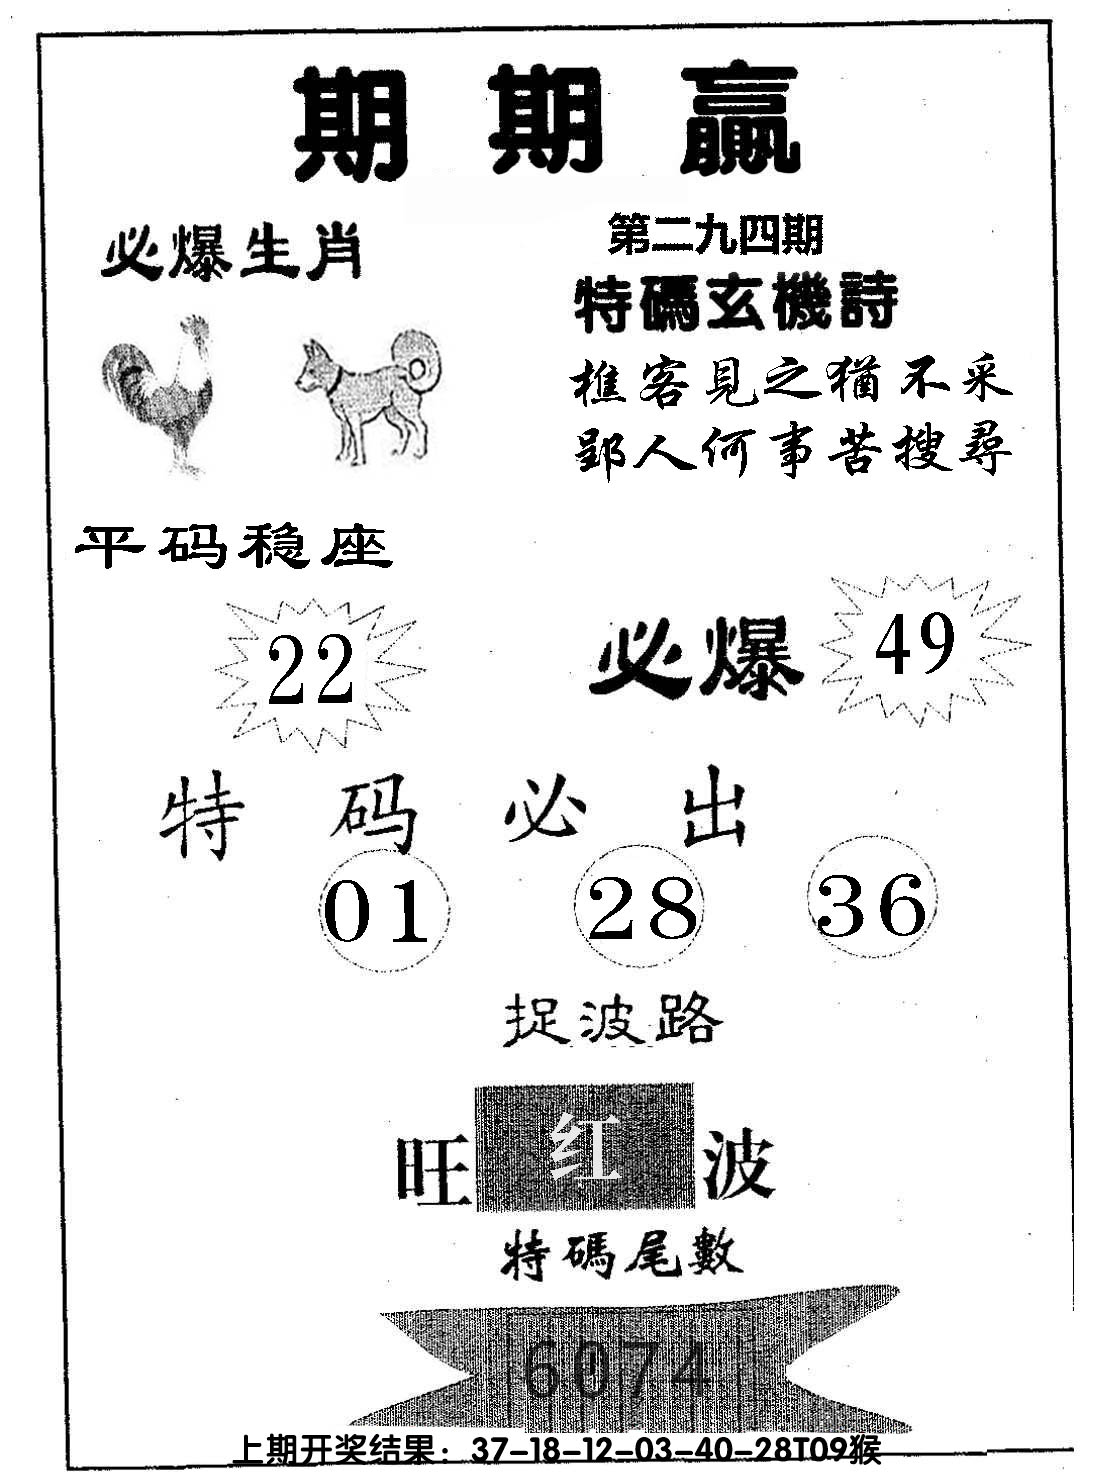 期期贏
必爆生肖
第二九四期
特碼玄機詩
樵客見之猶不采
郢人何事苦搜尋
平码稳座
22
必爆
49
特码必出
01 28 36
捉波路
旺红波
特碼尾數
6074
上期开奖结果：37-18-12-03-40-28T09猴